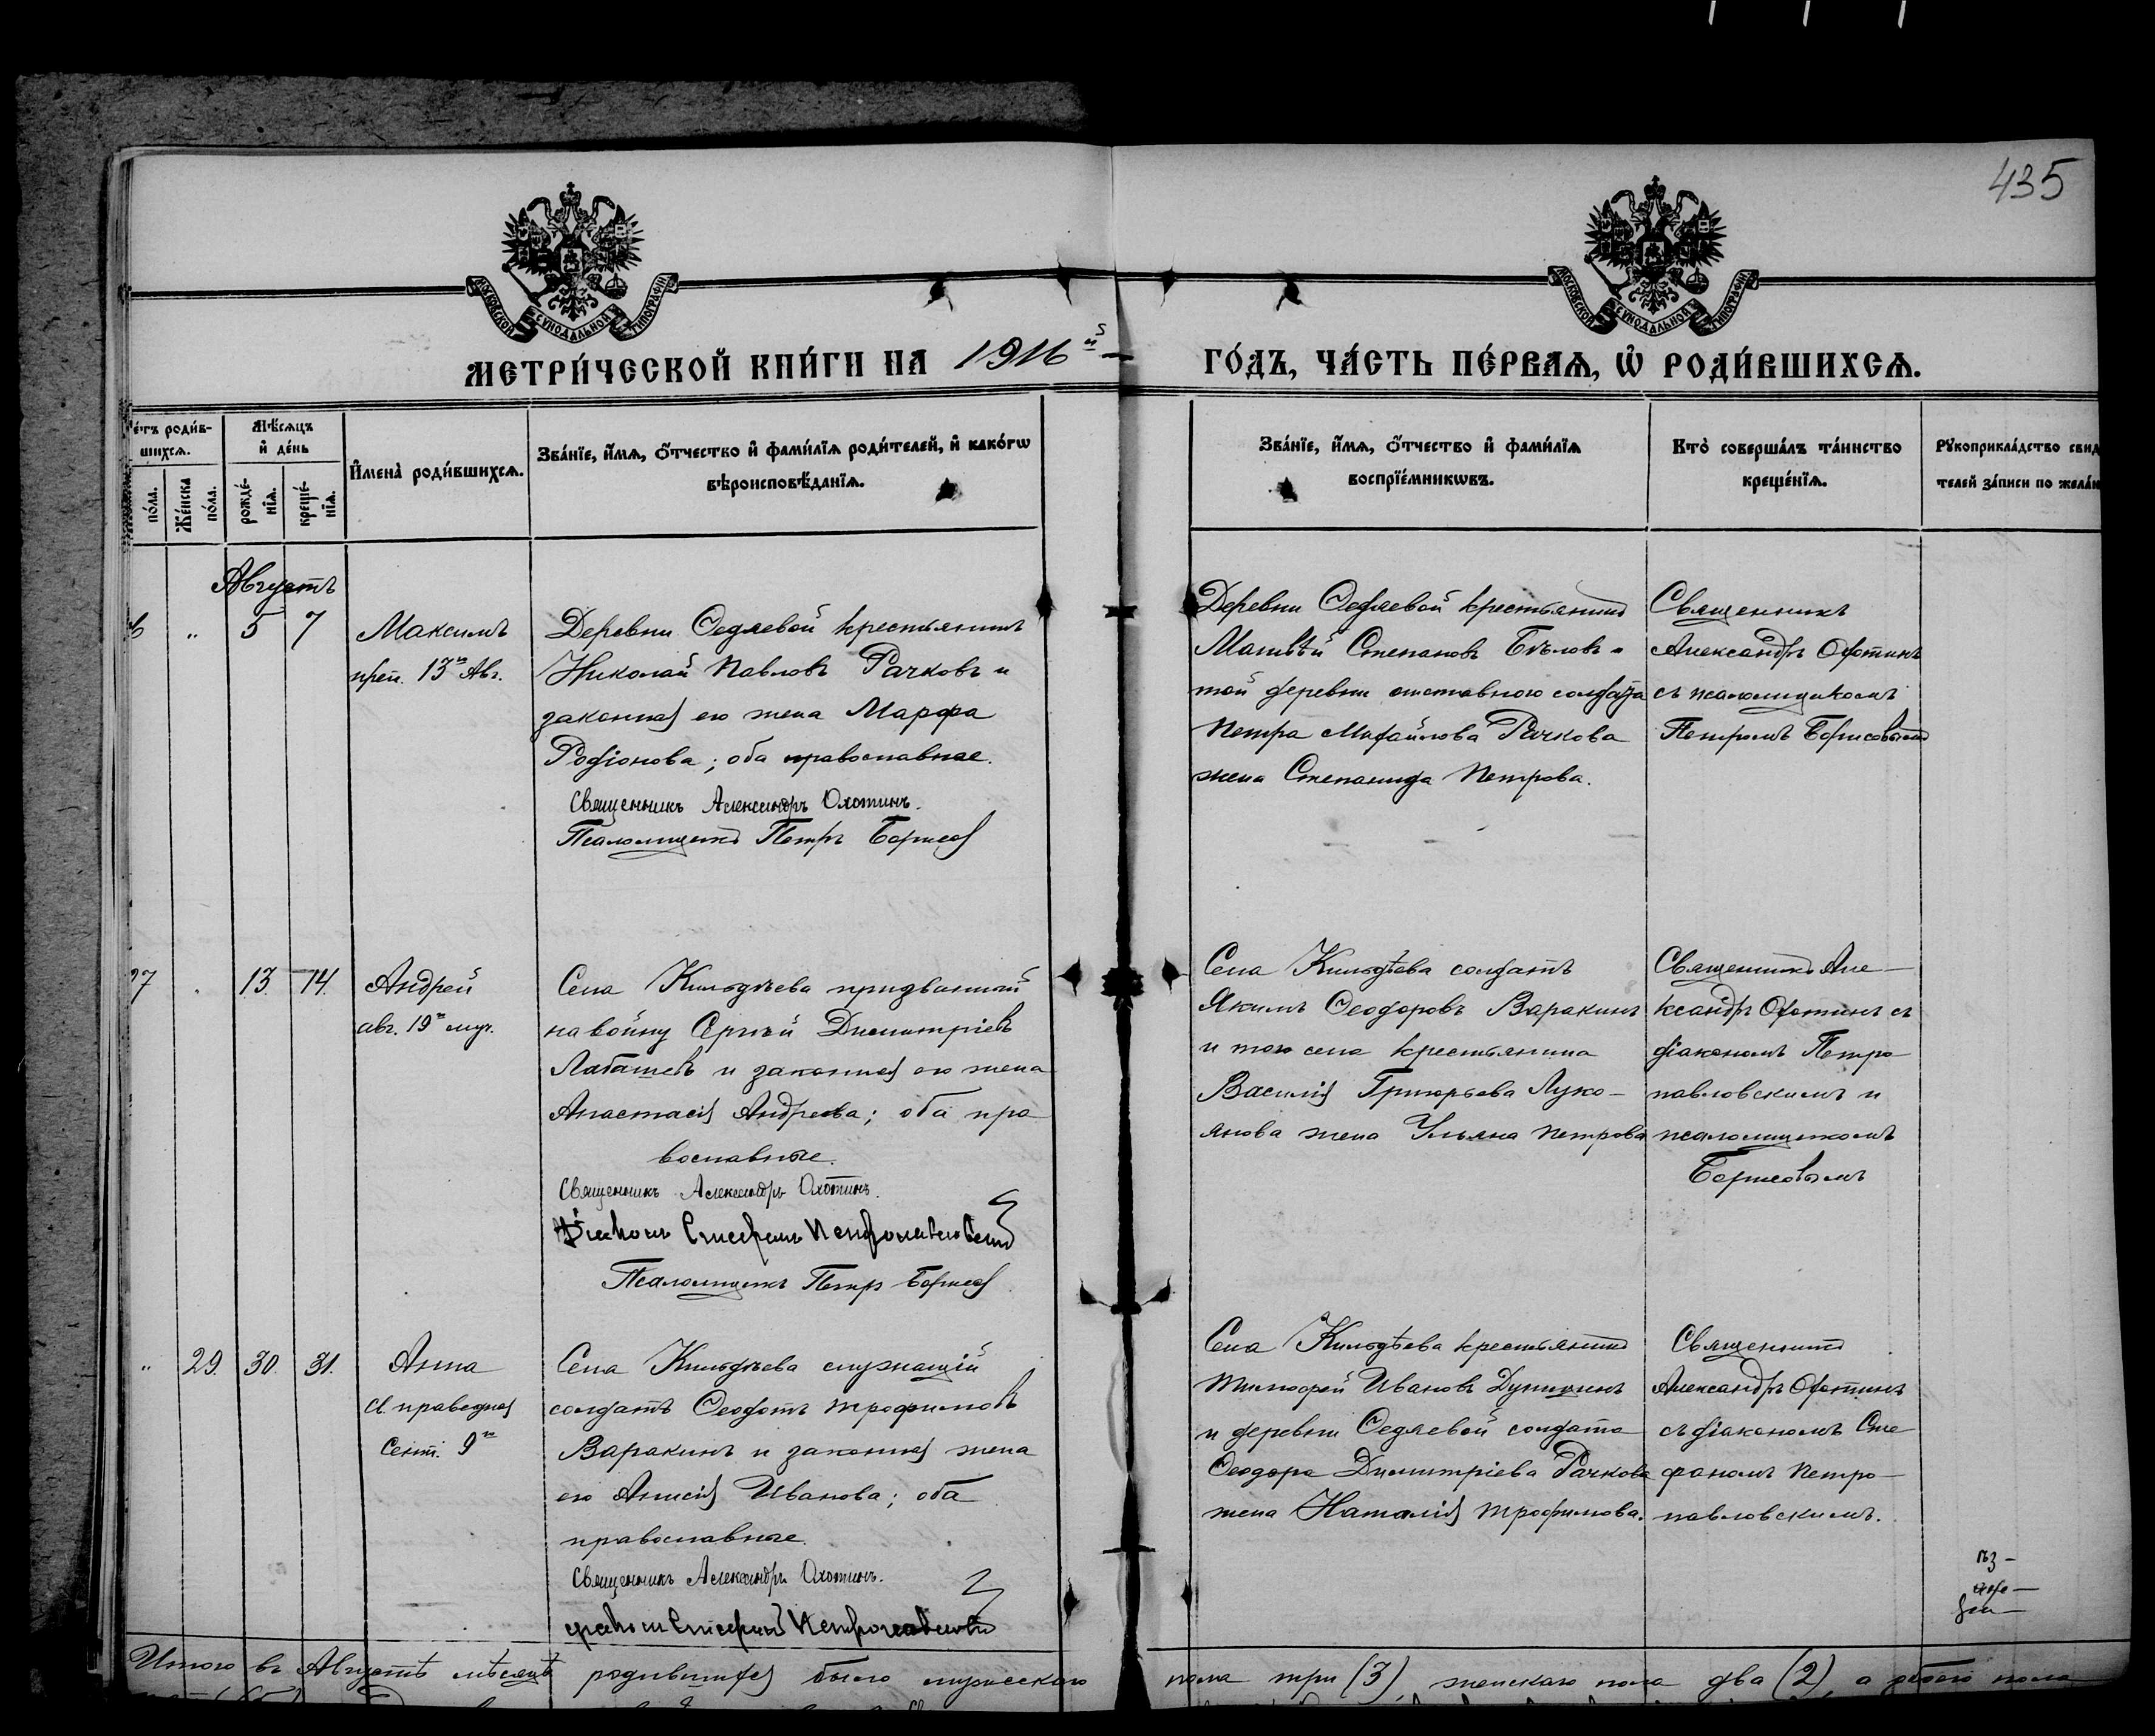 435
МОСКОВСКОЙ СѴНОДАЛЬНОЙ ТИПОГРАФІИ
МОСКОВСКОЙ СѴНОДАЛЬНОЙ ТИПОГРАФІИ
МЕТРИ́ЧЕСКОЙ КНИ́ГИ НА 1916й
ГО́ДЪ, ЧА́СТЬ ПЕ́РВАѦ, Ѽ РОДИ́ВШИХСѦ.
е́тъ роди́в-
шихсѧ.
по́ла.
Же́нска
по́ла.
Мѣ́сѧцъ
и҆ де́нь
рожде́-
нїѧ.
креще́-
нїѧ.
И҆мена̀ роди́вшихсѧ.
Зва́нїе, и҆́мѧ, ѻ҆́тчество и҆ фами́лїѧ роди́телей, и҆ како́гѡ
вѣроисповѣ́данїѧ.
Зва́нїе, и҆́мѧ, ѻ҆́тчество и҆ фами́лїѧ
воспрїе́мникѡвъ.
Кто̀ соверша́лъ та́инство
креще́нїѧ.
Рꙋкоприкла́дство свид
телей за́писи по жела́н
Августъ
6 " 5 7
Максимъ
преп. 13го Авг.
Деревни Седлевой крестьянинъ
Николай Павловъ Рачковъ и
законная его жена Марфа
Родіонова; оба православные.
Священникъ Александръ Охотинъ.
Псаломщикъ Петръ Борисов
Деревни Седлевой крестьянинъ
Матвѣй Степановъ Бѣловъ и
той деревни отставного солдата
Петра Михайлова Рачкова
жена Степанида Петрова.
Священникъ
Александръ Охотинъ
съ псаломщикомъ
Петромъ Борисовымъ
27 . 13. 14.
Андрей
авг. 19го муч.
Села Кильдѣева призванный
на войну Сергѣй Димитріевъ
Лабашевъ и законная его жена
Анастасія Андреева; оба пра
вославные.
Священникъ Александръ Охотинъ.
Діаконъ Стефанъ Петропавловскій
Псаломщикъ Петръ Борисов
Села Кильдѣева солдатъ
Якимъ Ѳеодоровъ Варакинъ
и того села крестьянина
Василія Григорьева Луко-
янова жена Ульяна Петрова
Священникъ Але-
ксандръ Охотинъ съ
діакономъ Петро-
павловскимъ и
псаломщикомъ
Борисовымъ
" 29. 30. 31.
Анна
св. праведная
Сент. 9го
Села Кильдѣева служащій
солдатъ Ѳеодотъ Трофимовъ
Варакинъ и законная жена
его Анисія Иванова; оба
православные.
Священникъ Александръ Охотинъ.
діаконъ Стефанъ Петропавловскій
Села Кильдѣева крестьянинъ
Тимофей Ивановъ
и деревни Седлевой солдата
Ѳеодора Димитріева Рачкова
жена Наталія Трофимова.
Священникъ
Александръ Охотинъ
съ діакономъ Сте
фаномъ Петро-
павловскимъ.
Итого въ Августѣ мѣсяцѣ родившихся было мужескаго
пола три (3), женскаго пола два (2), а обоего пола